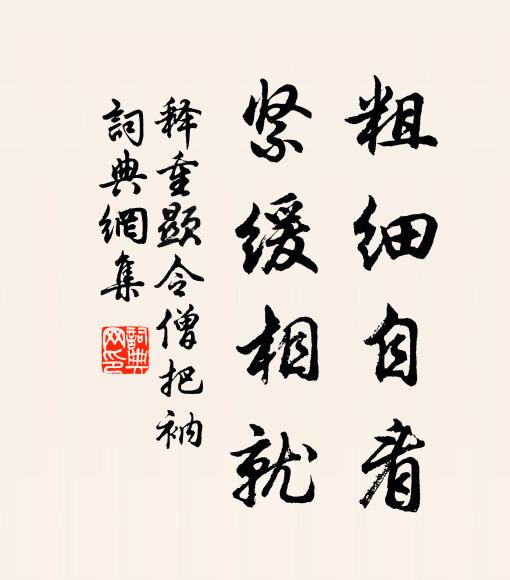 粗细自看
紧缓相就
释重显令僧把衲
詞典網集
詞典
网印